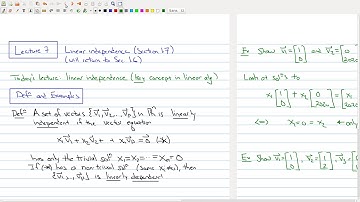 Lecture 7
Linear independence (Section 1.7)
(will return to Sec 1.6)
Today's lecture: linear independence (key concept in linear alg)
Defⁿ and Examples
Defⁿ: A set of vectors {v⃗₁, v⃗₂, ..., v⃗ₚ} in ℝⁿ is linearly
independent if the vector equation
x₁v⃗₁ + x₂v⃗₂ + + xₚv⃗ₚ = 0⃗ (*)
has only the trivial solⁿ x₁ = x₂ = = xₚ = 0
If (*) has a non trivial solⁿ (some xᵢ ≠ 0), then
{v⃗₁, ..., v⃗ₚ} is linearly dependent
Ex Show v⃗₁ = [1 0] and v⃗₂ = [0
Look at solⁿs to
x₁ [1 0] + x₂ [0 2020] = [
⟺ x₁ = 0 = x₂ ← only
Ex Show v⃗₁ = [1 0], v⃗₂ = [1 2], v⃗₃ =